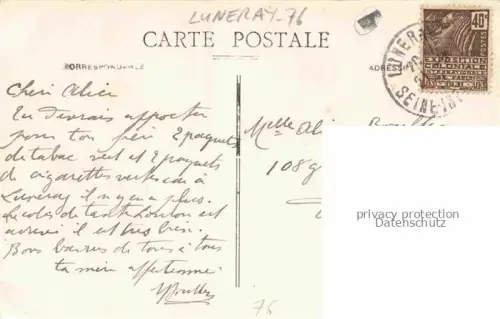 LUNERAY-76
CARTE POSTALE
CORRESPONDANCE
ADRESSE
40c
POSTES
EXPOSITION
COLONIALE
LUNERAY
SEINE-INF
Cheri Alice
Tu devrais apporter
pour ton père 2 paquets
de tabac vert et 2 paquets
de cigarettes vertes car à
Luneray il n y en a plus.
Le colis de tante Loulou est
arrivé il est très bien.
Bons baisers de tous à tous
ta mère affectionnée
Melle Alice
108
privacy protection
Datenschutz
76